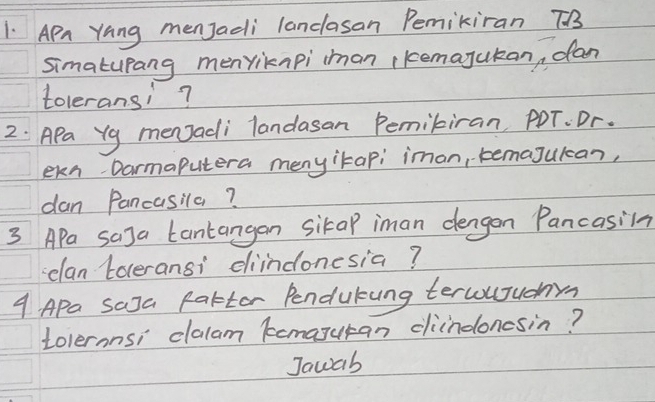 1. APA Yang menjadi landasan Pemikiran TB
Simatupang menyikapi iman, kemajukan, dan
toleransi ?
2. APa Yg menjadi landasan Pemikiran, PDT. Dr.
eka Darmaputera menyikapi iman, kemajukan,
dan Pancasila ?
3 APa saja tantangan sikap iman dengan Pancasila
dan toleransi diindonesia ?
4 APa saja Faktor Pendukung terwujudnya
toleransi dalam kemajukan diindonesia ?
Jawab